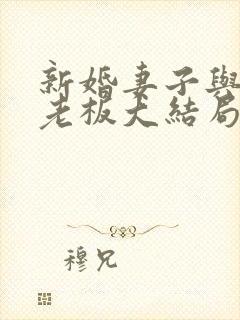 新婚妻子與
老板大結局
穆兄